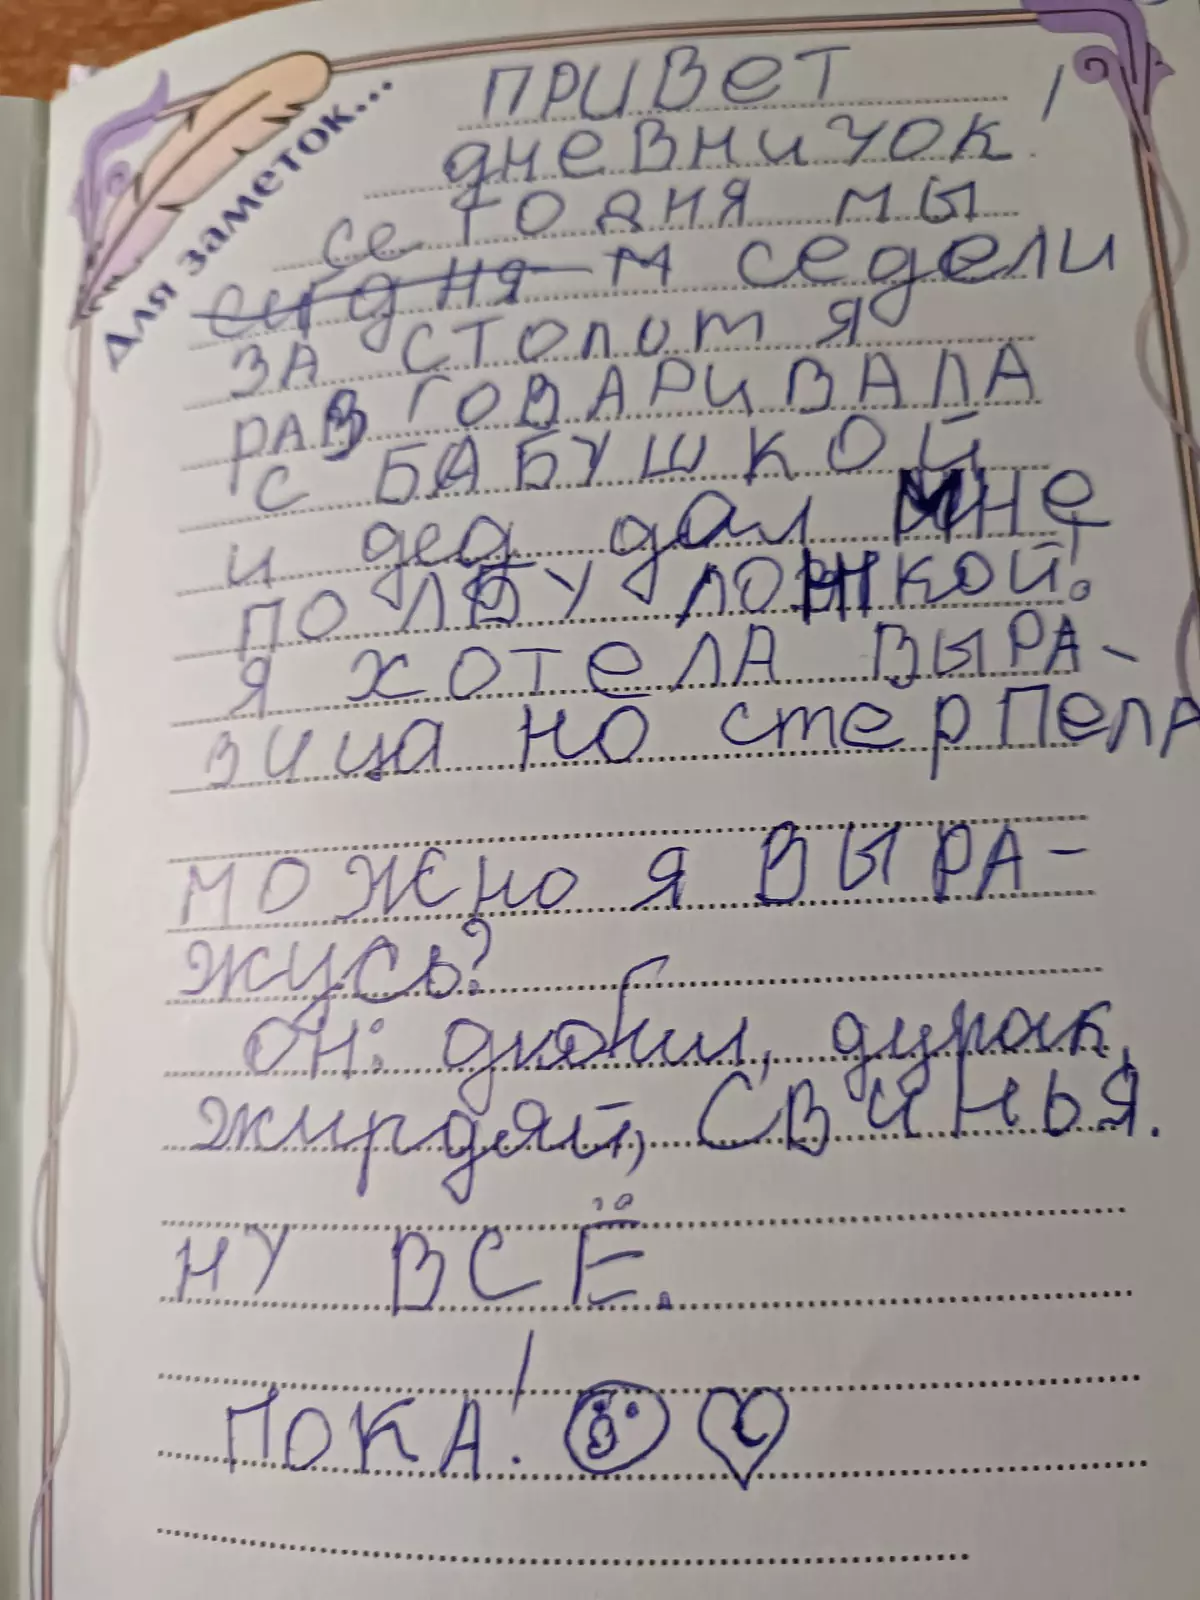 Для заметок...
ПРИВЕТ
ДНЕВНИЧОК!
СеГОДНЯ МЫ
седели
ЗА СТОЛОМ Я
РАЗГОВАРИВАЛА
С БАБУШКОЙ
и дед дал мне
ПО ЛБУ ЛОЖКОЙ!
Я ХОТЕЛА ВЫРА-
зица но стерПела
МОЖНО Я ВЫРА-
жусь?
Он: дибил, дурак,
жирдяй, СВИНЬЯ.
НУ ВСЁ.
ПОКА!